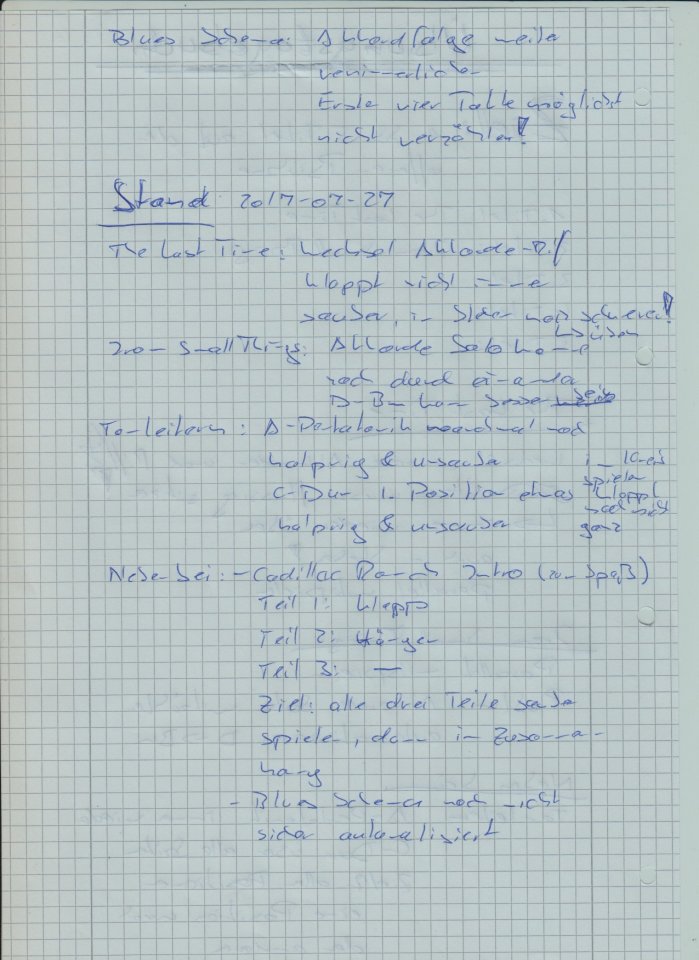 Blues Schema: Akkordfolge weiter
verinnerlichen
Erste vier Takte möglichst
nicht verzählen!
Stand 2017-07-27
The Last Time: Wechsel Akkorde-
klappt nicht immer
sauber, im Stehen noch schwerer!
Small Things: Akkorde
noch durch einander
D-Bm kann besser sein
Tonleitern: A-Pentatonik manchmal noch
halprig & unsauber
im Kreis
spielen
C-Dur 1. Position etwas
klappt
noch nicht
halprig & unsauber
ganz
Nebenbei: - Cadillac Ranch Intro (zum Spaß)
Teil 1: klappt
Teil 2: Hänger
Teil 3: —
Ziel: alle drei Teile sauber
spielen, dann im Zusammen-
hang
- Blues Schema noch nicht
sicher automatisiert